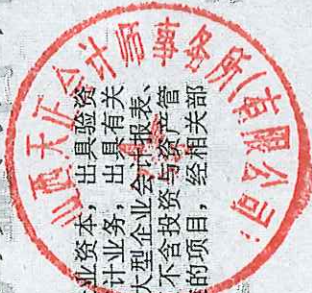 山西天正会计师事务所(有限公司)
业资本，出具验资
计业务，出具有关
大型企业会计报表、
不含投资与资产管
的项目，经相关部